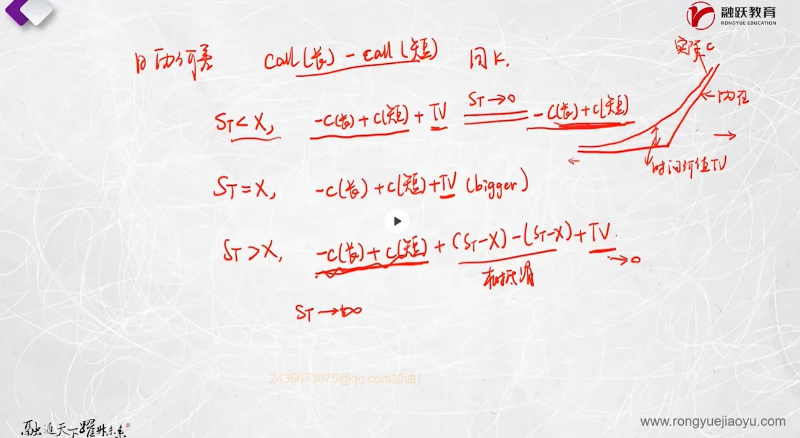 融跃教育
RONGYUE EDUCATION
日历价差 call(长) - call(短) 同K.
实际C
内在
时间价值TV
S_T<X, -C(长)+C(短)+TV S_T→0 -C(长)+C(短)
S_T=X, -C(长)+C(短)+TV (bigger)
S_T>X, -C(长)+C(短)+(S_T-X)-(S_T-X)+TV. →0
相抵消
S_T→∞
2436673075@qq.com加油!
融通天下 耀跃未来
www.rongyuejiaoyu.com